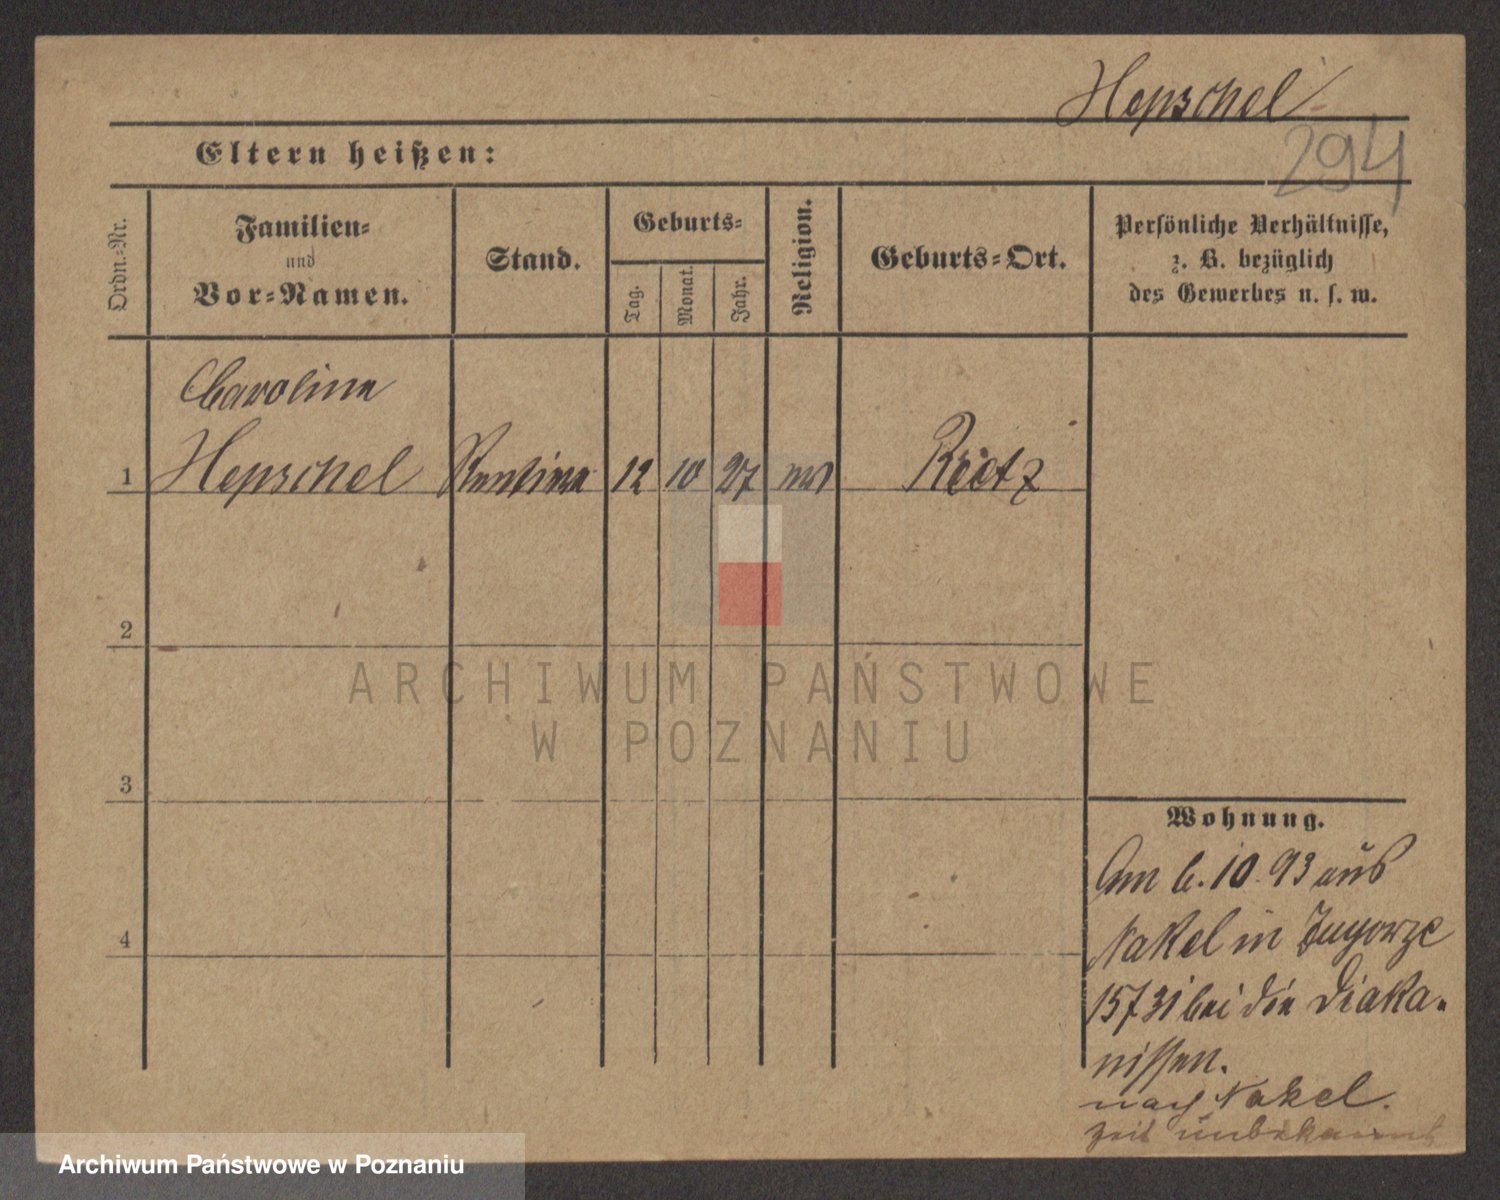 Hepschel
294
Eltern heißen:
Ordn.-Nr.
Familien-
und
Vor-Namen.
Stand.
Geburts-
Tag.
Monat.
Jahr.
Religion.
Geburts-Ort.
Persönliche Verhältnisse,
z. B. bezüglich
des Gewerbes u. s. w.
Caroline
1 Hepschel Rentiere 12 10 27 Reetz
2
3
4
ARCHIWUM PAŃSTWOWE
W POZNANIU
Wohnung.
Am 6. 10. 93 aus
Nakel in
bei den Diako-
nissen.
nach Nakel.
Zeit unbekannt
Archiwum Państwowe w Poznaniu